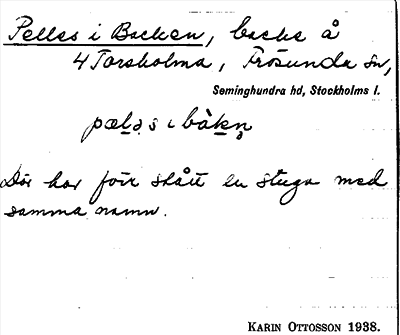 Pelles i Backen, backe å
4 Torsholma, Frösunda sn,
Seminghundra hd, Stockholms l.
pæl̲ə s ı bàk̲n̥
Där har förr stått en stuga med
samma namn.
KARIN OTTOSSON 1938.